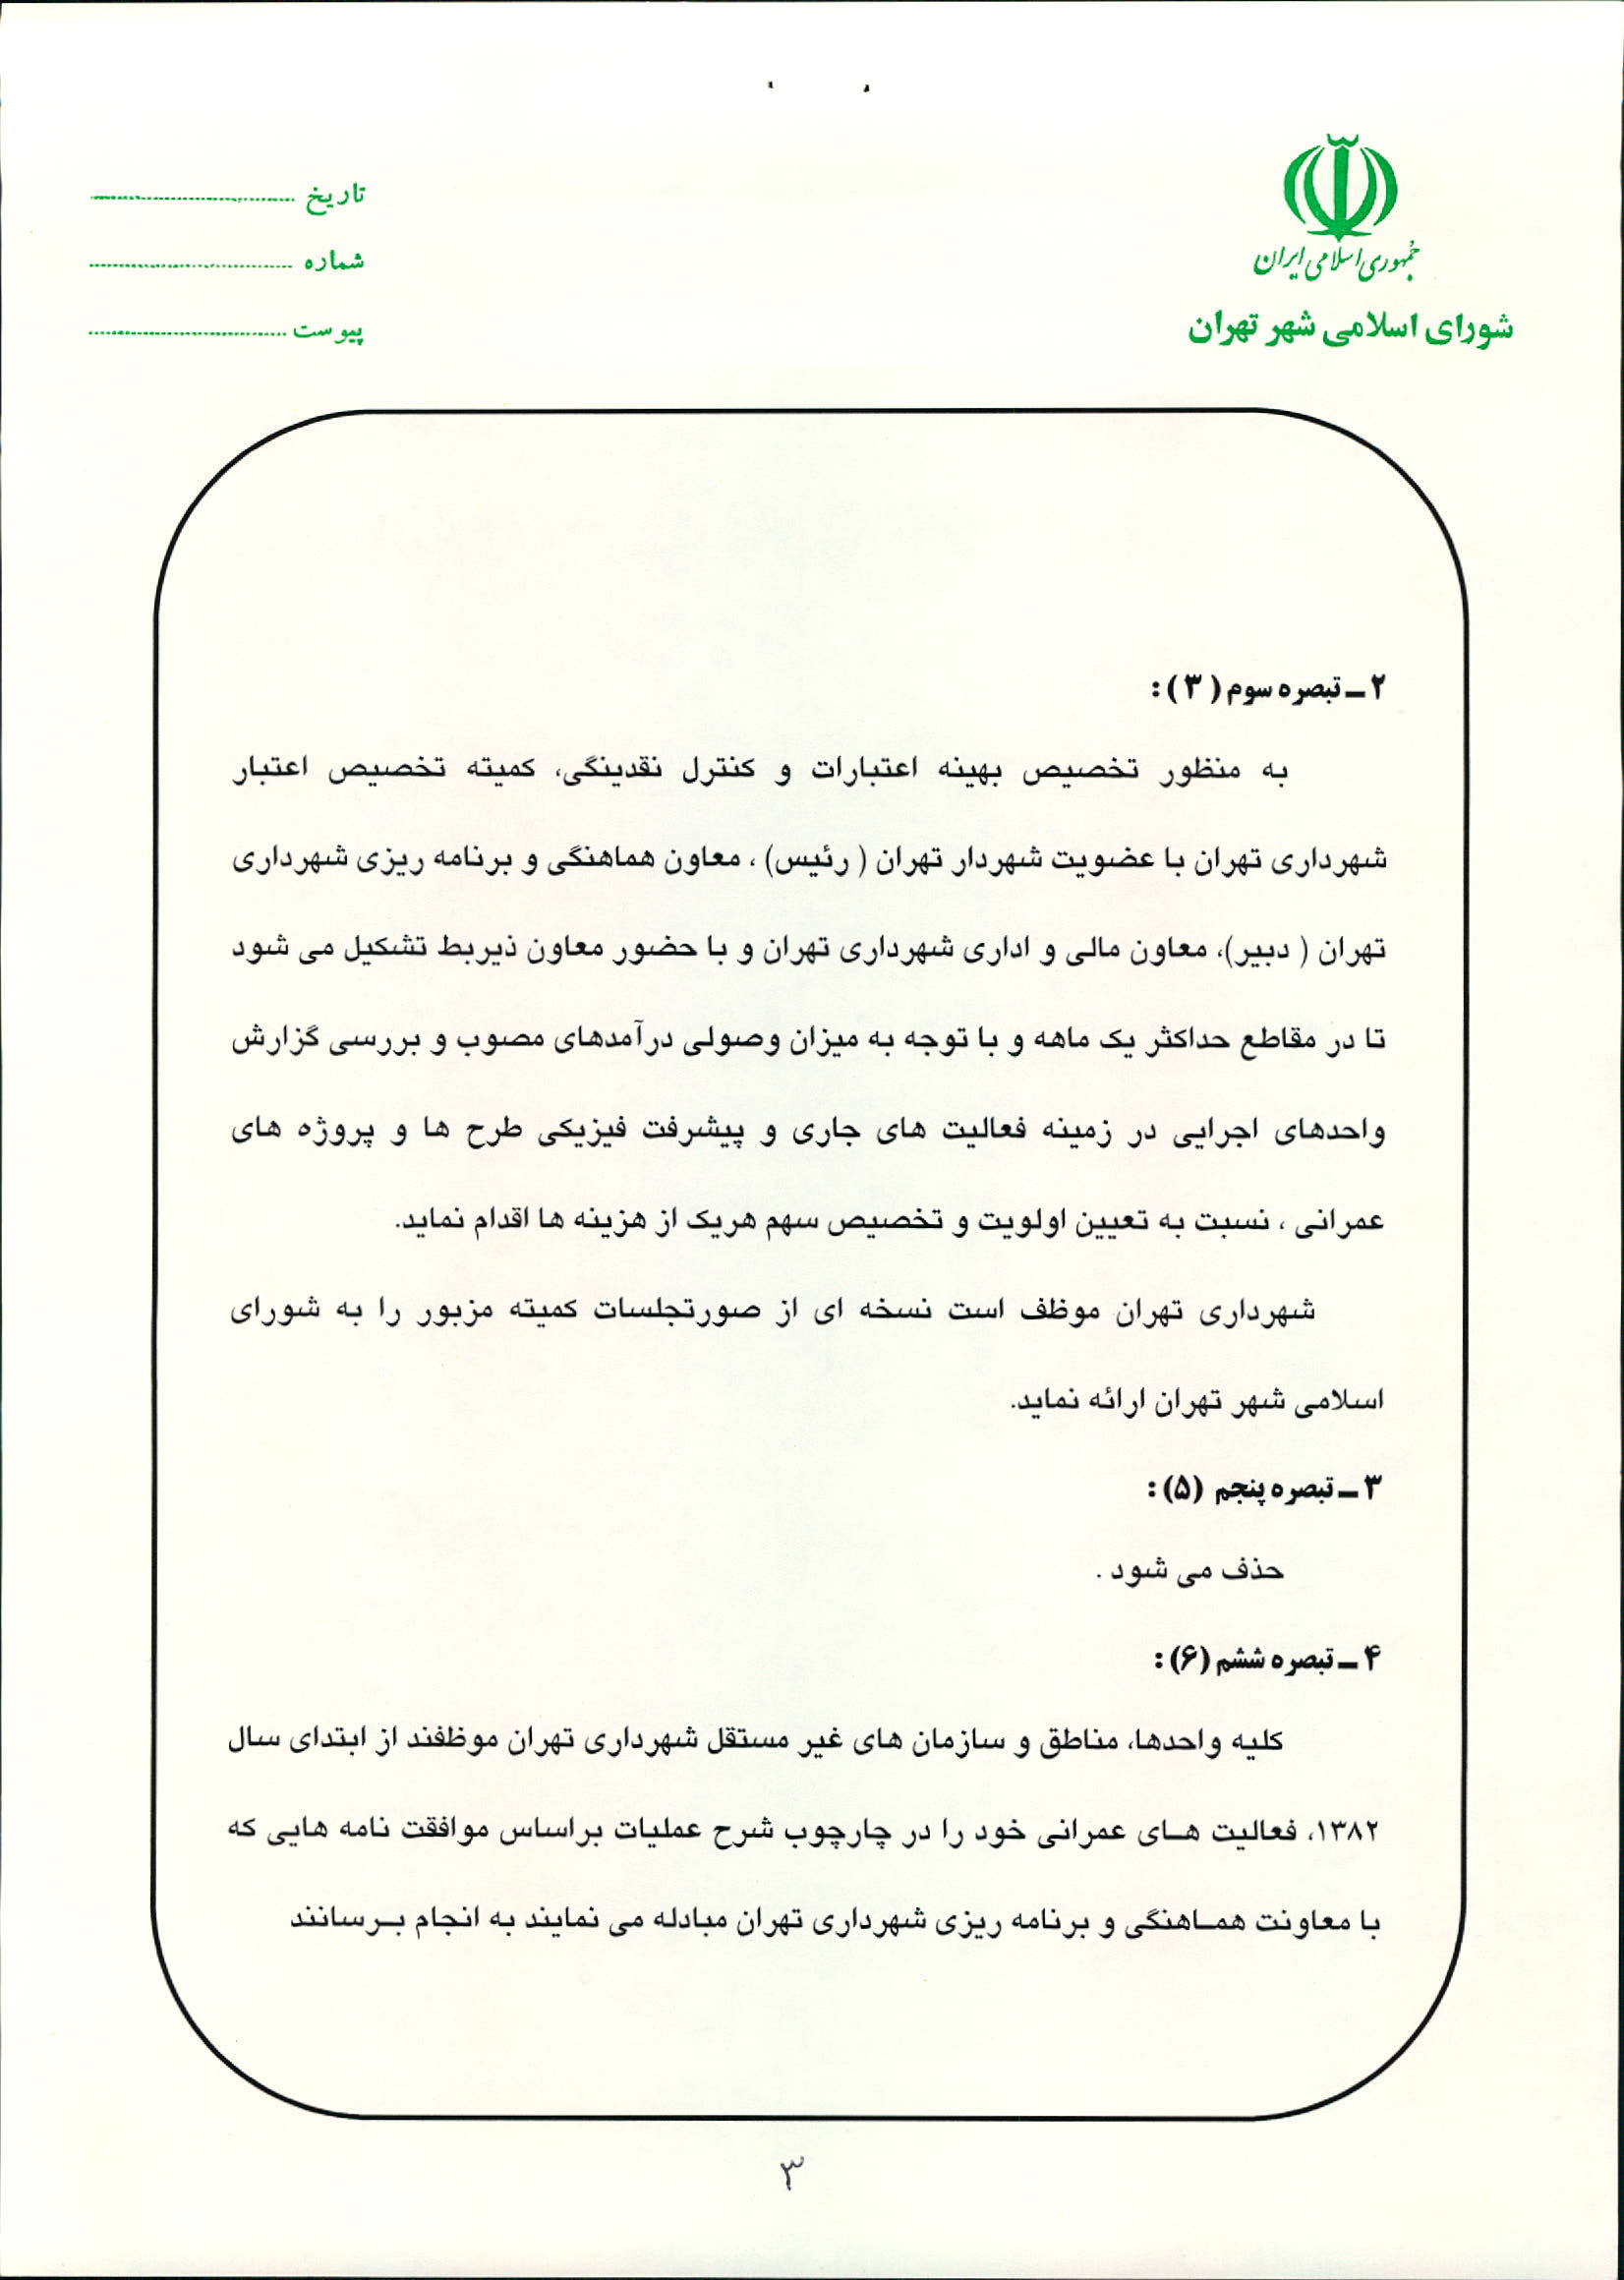 جمهوری اسلامی ایران
شورای اسلامی شهر تهران
تاریخ ........................
شماره ........................
پیوست ........................
۲ ــ تبصره سوم ( ۳ ) :
به منظور تخصیص بهینه اعتبارات و کنترل نقدینگی، کمیته تخصیص اعتبار
شهرداری تهران با عضویت شهردار تهران ( رئیس) ، معاون هماهنگی و برنامه ریزی شهرداری
تهران ( دبیر)، معاون مالی و اداری شهرداری تهران و با حضور معاون ذیربط تشکیل می شود
تا در مقاطع حداکثر یک ماهه و با توجه به میزان وصولی درآمدهای مصوب و بررسی گزارش
واحدهای اجرایی در زمینه فعالیت های جاری و پیشرفت فیزیکی طرح ها و پروژه های
عمرانی ، نسبت به تعیین اولویت و تخصیص سهم هریک از هزینه ها اقدام نماید.
شهرداری تهران موظف است نسخه ای از صورتجلسات کمیته مزبور را به شورای
اسلامی شهر تهران ارائه نماید.
۳ ــ تبصره پنجم (۵) :
حذف می شود .
۴ ــ تبصره ششم (۶) :
کلیه واحدها، مناطق و سازمان های غیر مستقل شهرداری تهران موظفند از ابتدای سال
۱۳۸۲، فعالیت هـای عمرانی خود را در چارچوب شرح عملیات براساس موافقت نامه هایی که
با معاونت همـاهنگی و برنامه ریزی شهرداری تهران مبادله می نمایند به انجام بـرسانند
۳